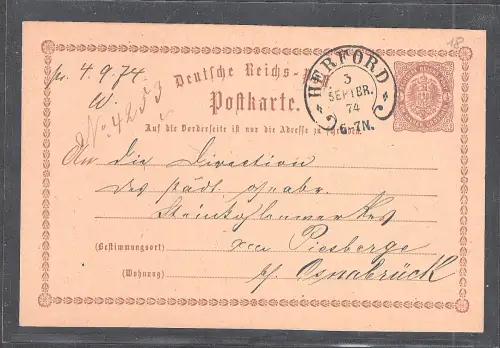 18
pr. 4.9.74.
W.
No: 4253
Deutsche Reichs-
Postkarte.
HERFORD
3
SEPTBR.
74
6-7N.
Auf die Vorderseite ist nur die Adresse zu
An die Direction
des städt.
Steinkohlenwerkes
(Bestimmungsort) Piesberge
(Wohnung) b/ Osnabrück